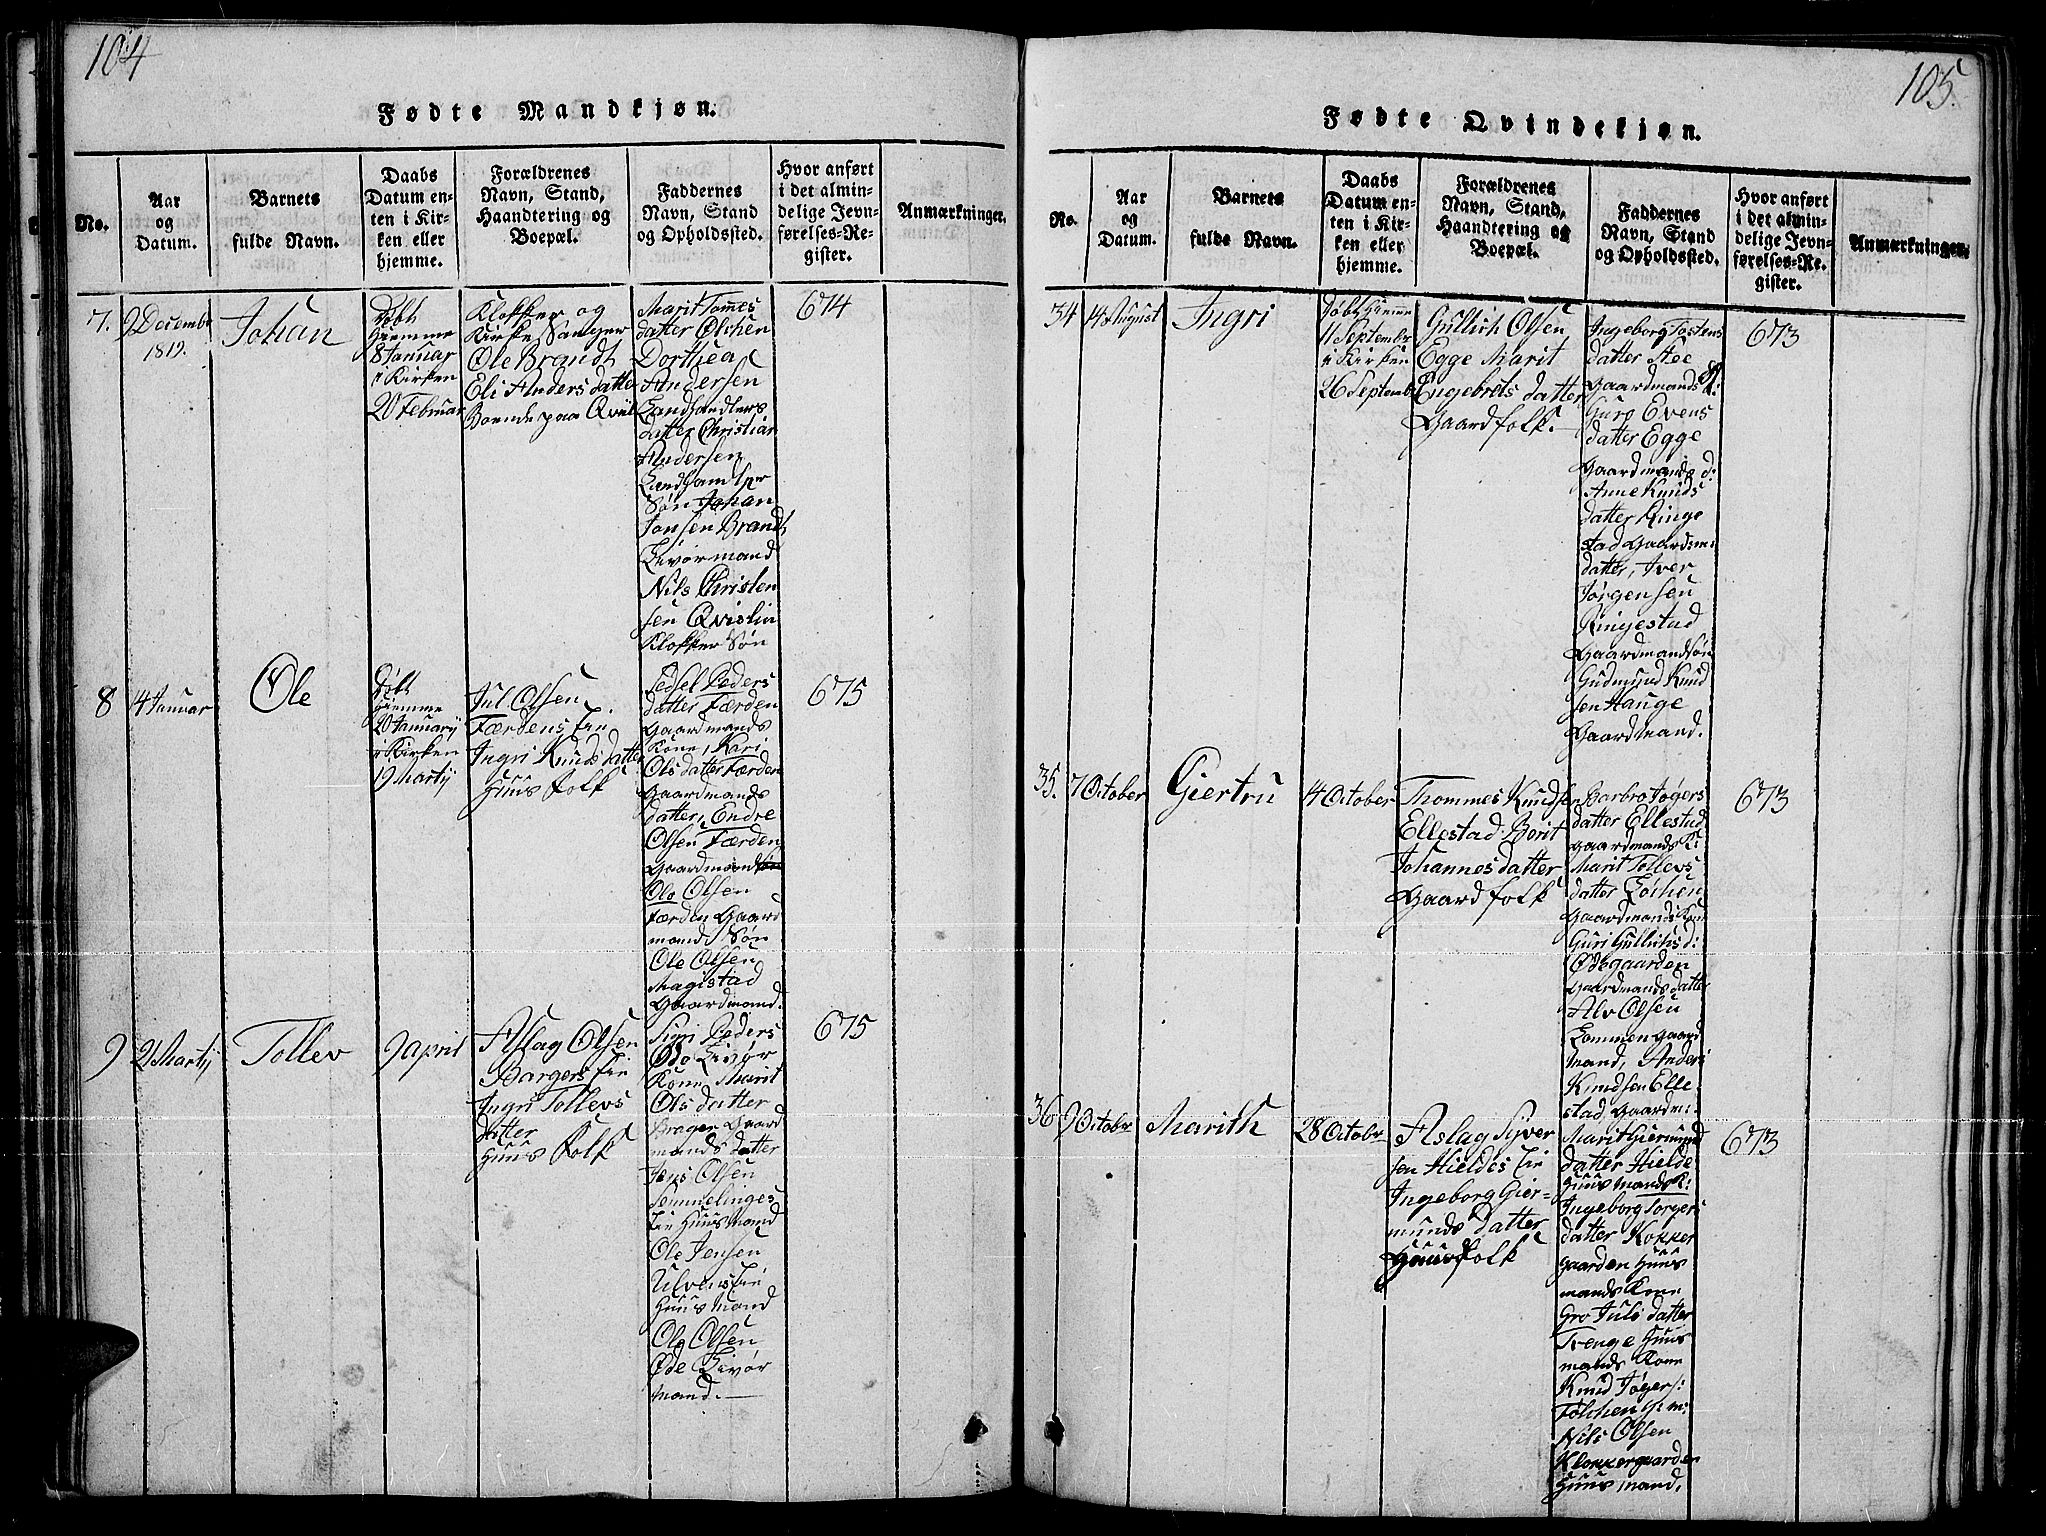 104
Fødte Mandkjøn.
No.
Aar
og
Datum.
Barnets
fulde Navn.
Daabs
Datum en-
ten i Kir-
ken eller
hjemme.
Forældrenes
Navn, Stand,
Haandtering og
Boepæl.
Faddernes
Navn, Stand
og Opholdssted.
Hvor anført
i det almin-
delige Jevn-
førelses-Re-
gister.
Anmærkninger.
7.
9 Decembr
1819.
Johan
Døbt
hiemme
8 Januar
i Kirken
20 Februar
Klokker og
Kirke Sanger
Ole Brandt
Eli Anders datter
Boende paa Qviil
Marit Tomes
datter Olchen
Dorthea
Andersen
Landhandlers
datter Christian
Andersen
Landhandler
Søn Johan
Jonsen Brandt
Livørmand
Nils Christen
sen Qvislin
Klokker Søn
674
8
4 Januar
Ole
Døbt
hiemme
20 Januarij
i Kirken
19 Martij
Jul Olsen
Færdens Eie
Ingri Knuds datter
Huus folk
Sidsel Peders
datter Færden
Gaardmands
Kone, Kari
Ols datter Færden
Gaardmands
datter, Endre
Olsen Færden
Gaardmand
Ole Olsen
Færden Gaard
mands Søn
Ole Olsen
Magistad
Gaardmand.
675
9
21 Martij
Tollev
9 April
Aslag Olsen
Bargers Eie
Ingri Tollevs
datter
Huus Folk
Sigri Peders
Øde Livør
Kone Marit
Ols datter
Brager Gaard
mands datter
Jens Olsen
Semmelinges
Eie Huusmand
Ole Jensen
Ulvens Eie
Huusmand
Ole Olsen
Øde Livør
mand.
675
105.
Fødte Qvindekjøn.
No.
Aar
og
Datum.
Barnets
fulde Navn.
Daabs
Datum en-
ten i Kir-
ken eller
hjemme.
Forældrenes
Navn, Stand,
Haandtering og
Boepæl.
Faddernes
Navn, Stand
og Opholdssted.
Hvor anført
i det almin-
delige Jevn-
førelses-Re-
gister.
Anmærkninger.
34
14 August
Ingri
Døbt hiemme
11 Septembr
i Kirken
26 Septembr
Gullich Olsen
Egge Marit
Engebrets datter
Gaard folk.
Ingeborg Tostens
datter Stee
Gaardmands K:
Guro Evens
datter Egge
Gaardmands d:
Anne Knuds
datter Ringe
stad Gaardsm:
datter, Iver
Jørgensen
Ringestad
Gaardmandsøn
Gudmund Knud
sen Hauge
Gaardmand.
673
35.
7 October
Giertru
14 October
Thommes Knudsen
Ellestad Berit
Johannes datter
Gaard folk
Barbro Jøgers
datter Ellestad
Gaardmands K:
Marit Tollevs
datter Løchen
Gaardmands Kon
Guri Gullichs d:
Ødegaarden
Gaardmands datter
Alv Olsen
Lommen Gaard
mand, Anders
Knudsen Elle
stad Gaardm:
673
36
9 Octobr
Marith
28 Octobr
Aslag Syver
sen Hieldes Eie
Ingeborg Gier-
munds datter
Huusfolk
Marit Giermund
datter Hielde
Huusmands K:
Ingeborg Torgers
datter Kokker
gaarden Huus
mands Kone
Gro Juls datter
Trenge Huus
mands Kone
Knud Jøgers:
Følchen g: m:
Nils Olsen
Klokkergaarden
Huusmand.
673